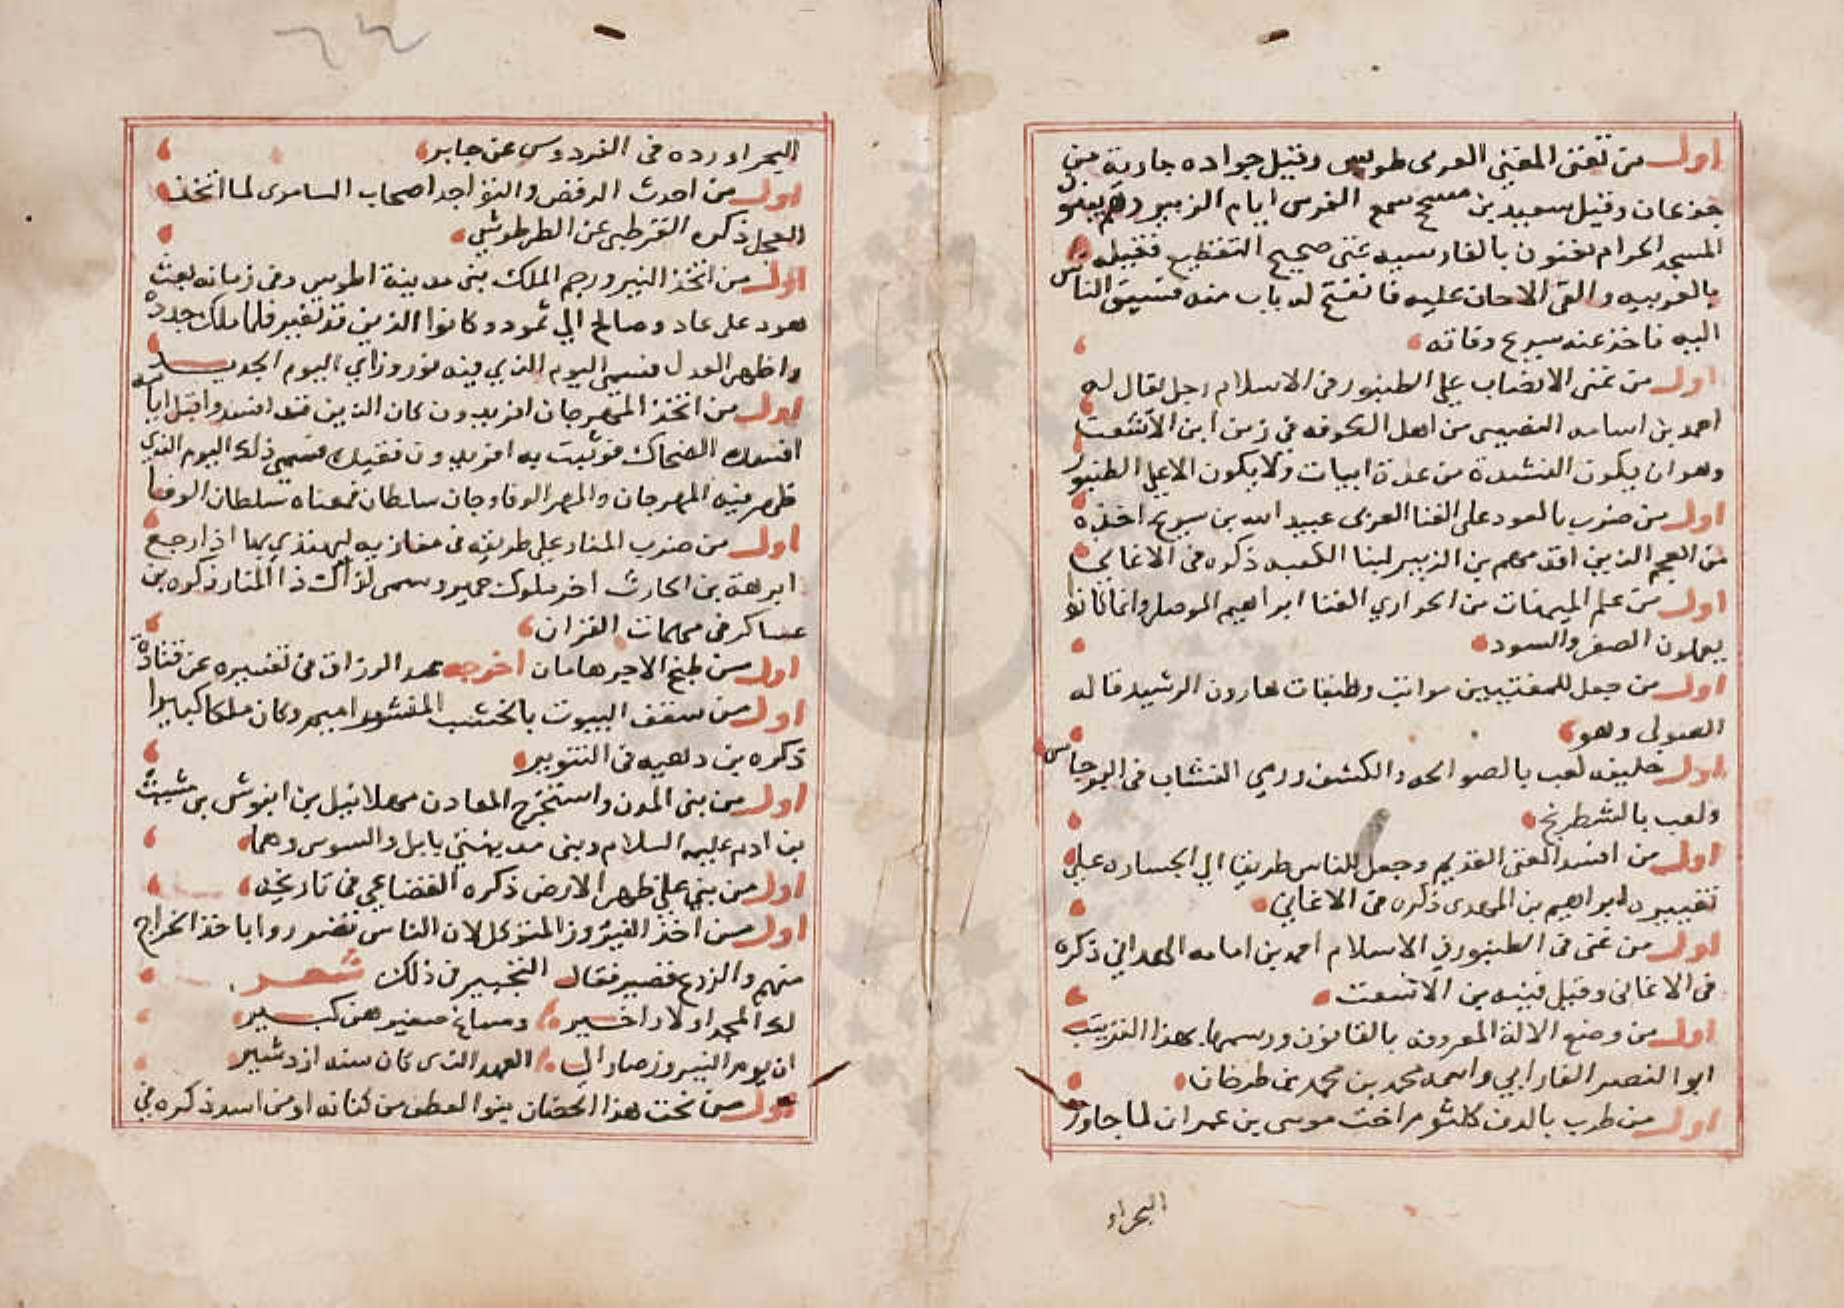 اول من تغنى المغنى العربى طويس وقيل جواده جارية من
جدعان وقيل سعيد بن مسبح سمع الفرس ايام الزبير وهم يبنو
المسجد الحرام يغنون بالفارسيه غنى صحيح التقطيع فقبله
بالعربيه والقى الالحان عليه فانفتح له باب منه فتسبق الناس
اليه فاخذ عنه سريج وفاته
اول من غنى الانصاب على الطنبور فى الاسلام رجل يقال له
احمد بن اسامه النصيبى من اهل الكوفه فى زمن ابن الاشعت
وهو ان يكون النشدة من عدة ابيات ولا يكون الا على الطنبور
اول من ضرب بالعود على الغنا العربى عبيد الله بن سريج اخذه
من العجم الذين اقدمهم بن الزبير لبنا الكعبه ذكره فى الاغانى
اول من علم الميمنات من الجواري الغنا ابراهيم الموصلى وانما كانوا
يعملون الصفر والسود
اول من جعل للمغنيين مراتب وطبقات هارون الرشيد قاله
الصولى وهو
اول خليفه لعب بالصوالحه والكشف ورمي النشاب فى البرجاس
ولعب بالشطرنج
اول من افسد المغنى القديم وجعل للناس طريقا الي الجساره على
تغييره ابراهيم بن المهدى ذكره فى الاغاني
اول من غنى فى الطنبور في الاسلام احمد بن امامه الهمداني ذكره
فى الاغانى وقيل فينه بن الاشعت
اول من وضع الالة المعروفه بالقانون ورسمها بهذا الترتيب
ابوا النصر الفارابي واسمه محمد بن محمد بن طرخان
اول من طرب بالدف كلثوم اخت موسى بن عمران لما جاوز
البحر او
البحر اورده فى الفردوس عن جابر
اول من احدث الرقص والتواجد اصحاب السامرى لما اتخذ
العجل ذكره القرطبى عن الطرطوشي
اول من اتخذ النيروز جم الملك بنى مدينة اطوس وفى زمانه بعث
هود على عاد وصالح الي ثمود وكانوا الذين قد تغير فلما ملك جدده
واظهر العدل فسمى اليوم الذي فيه نوروز اي اليوم الجديد
اول من اتخذ المهرجان افريدون كان الذين قد افسد واقبل اياته
افسده الضحاك فوثبت به افريدون فقيده فسمي ذلك اليوم الذي
ظهر فيه المهرجان والمهر الوفا وجان سلطان فمعناه سلطان الوفا
اول من ضرب المنار على طريقه فى مغازيه ليهتدي بها اذا رجع
ابرهة بن الحارث اخر ملوك حمير وسمى لذلك ذا المنار ذكره بن
عساكر فى مبهمات القران
اول من طبخ الاجر هامان اخرجه عبد الرزاق فى تفسيره عن قتادة
اول من سقف البيوت بالخشب المنشور اميم وكان ملكا كبيرا
ذكره بن دلهيه فى التنوير
اول من بنى المدن واستخرج المعادن مهلائيل بن انوش بن شيث
بن ادم عليه السلام وبنى مدينتي بابل والسوس وهما
اول من بني على ظهر الارض ذكره القضاعي فى تاريخه
اول من اخذ النيروز المتوكل لان الناس تضرروا باخذ الخراج
منهم والزرع قصير فقال البحتري فى ذلك شعر
لك المجد اولا واخير ومساع صغيرهن كبير
ان يوم النيروز صار الي العهد الذى كان سنه اردشير
اول من نحت هذا الحصان بنوا العطف من كنانه او من اسد ذكره في